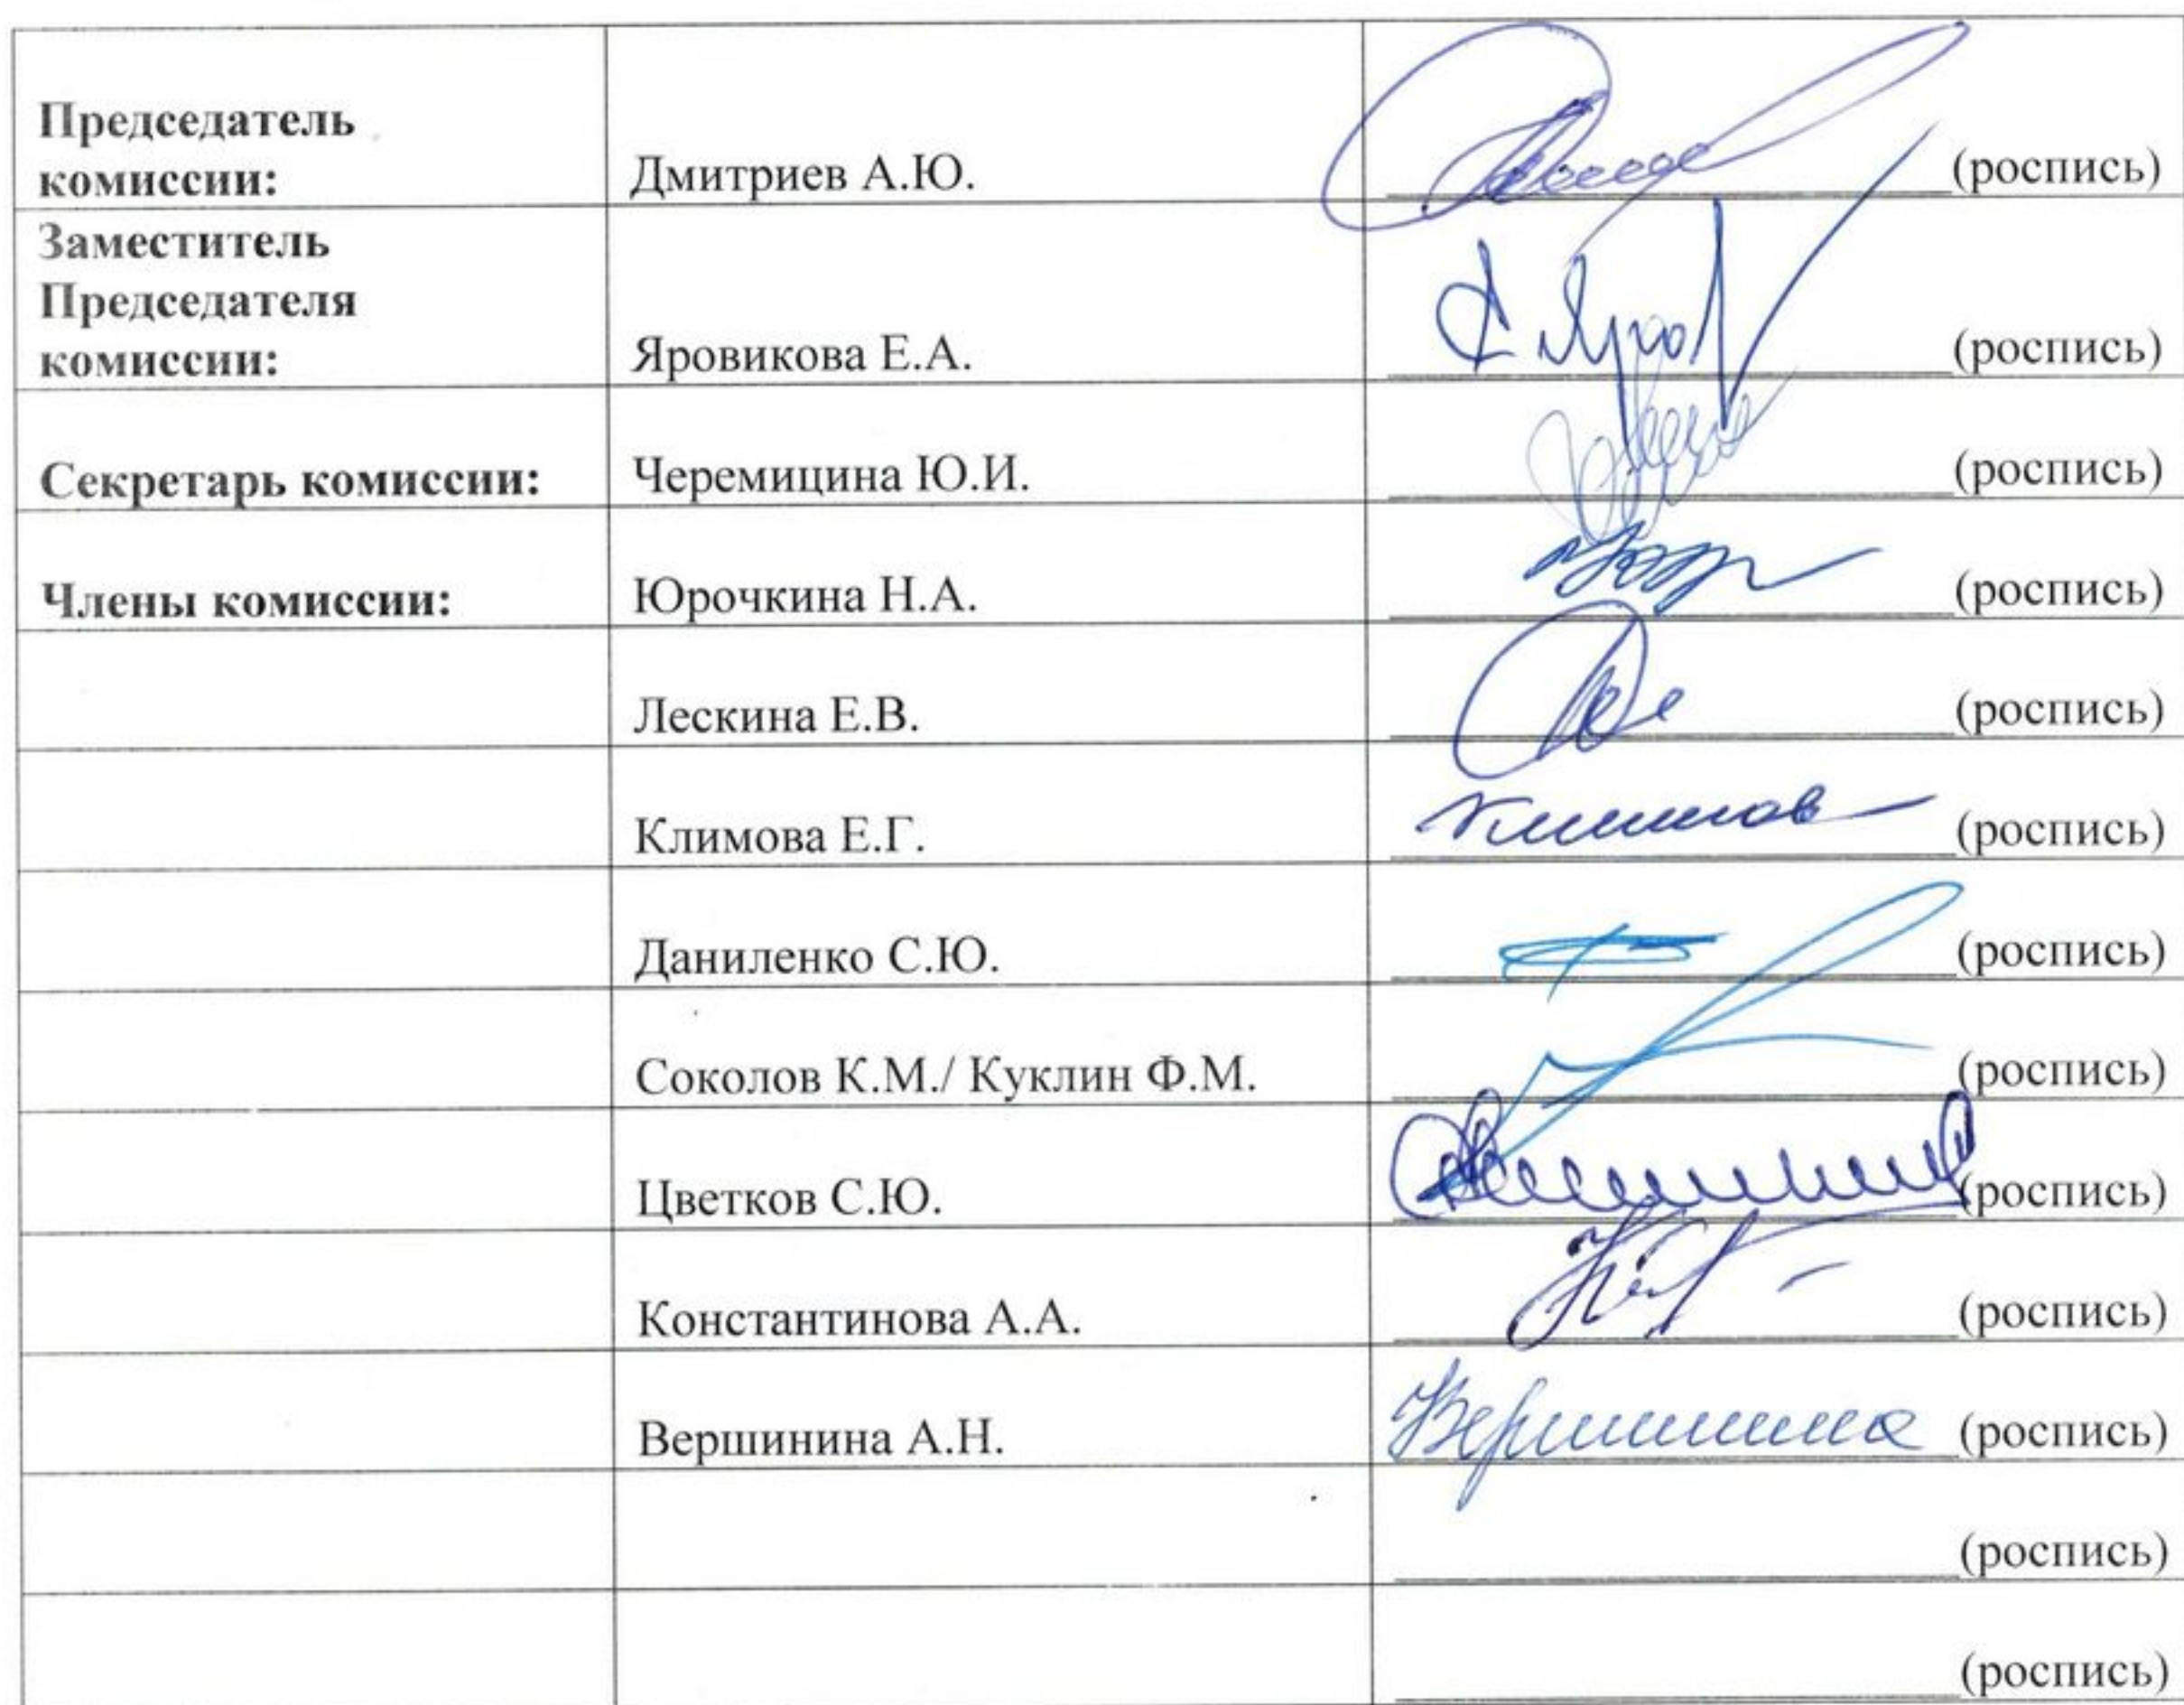 Председатель
комиссии:
Дмитриев А.Ю.
(роспись)
Заместитель
Председателя
комиссии:
Яровикова Е.А.
(роспись)
Секретарь комиссии:
Черемицина Ю.И.
(роспись)
Члены комиссии:
Юрочкина Н.А.
(роспись)
Лескина Е.В.
(роспись)
Климова Е.Г.
(роспись)
Даниленко С.Ю.
(роспись)
Соколов К.М./ Куклин Ф.М.
(роспись)
Цветков С.Ю.
(роспись)
Константинова А.А.
(роспись)
Вершинина А.Н.
Вершинина (роспись)
(роспись)
(роспись)